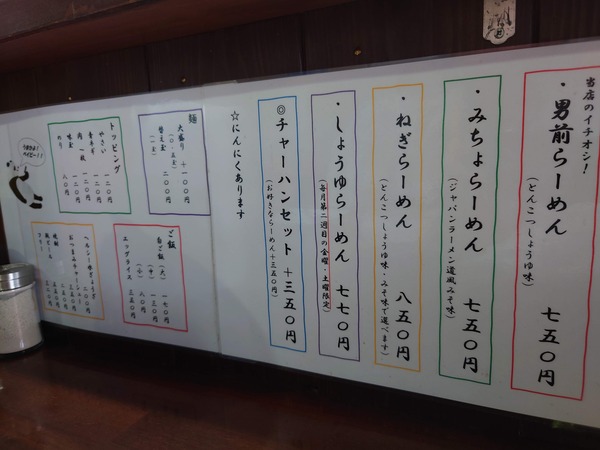 当店のイチオシ!
・男前らーめん 七五〇円
(とんこつしょうゆ味)
・みちょらーめん 七五〇円
(ジャパンラーメン道風みそ味)
・ねぎらーめん 八五〇円
(とんこつしょうゆ味・みそ味で選べます)
・しょうゆらーめん 七七〇円
(毎月第二週目の金曜・土曜限定)
◎チャーハンセット +三五〇円
(お好きならーめん+三五〇円)
☆にんにくあります
麺
大盛り +一〇〇円
(一・五玉)
替え玉 二〇〇円
(一玉)
トッピング
やさい 一二〇円
青ネギ 一二〇円
肉一枚 一二〇円
味玉 一二〇円
のり 八〇円
ご飯
白ご飯 (大) 一七〇円
(中) 一三〇円
(小) 八〇円
エッグライス 三五〇円